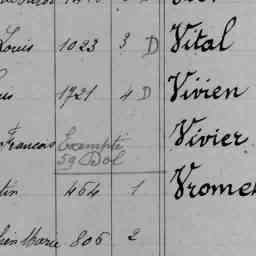 Louis 1023 3 D Vital
1721 4 D Vivien
François Exempté Vivier
59
464 1 Vromet
Marie 806 2